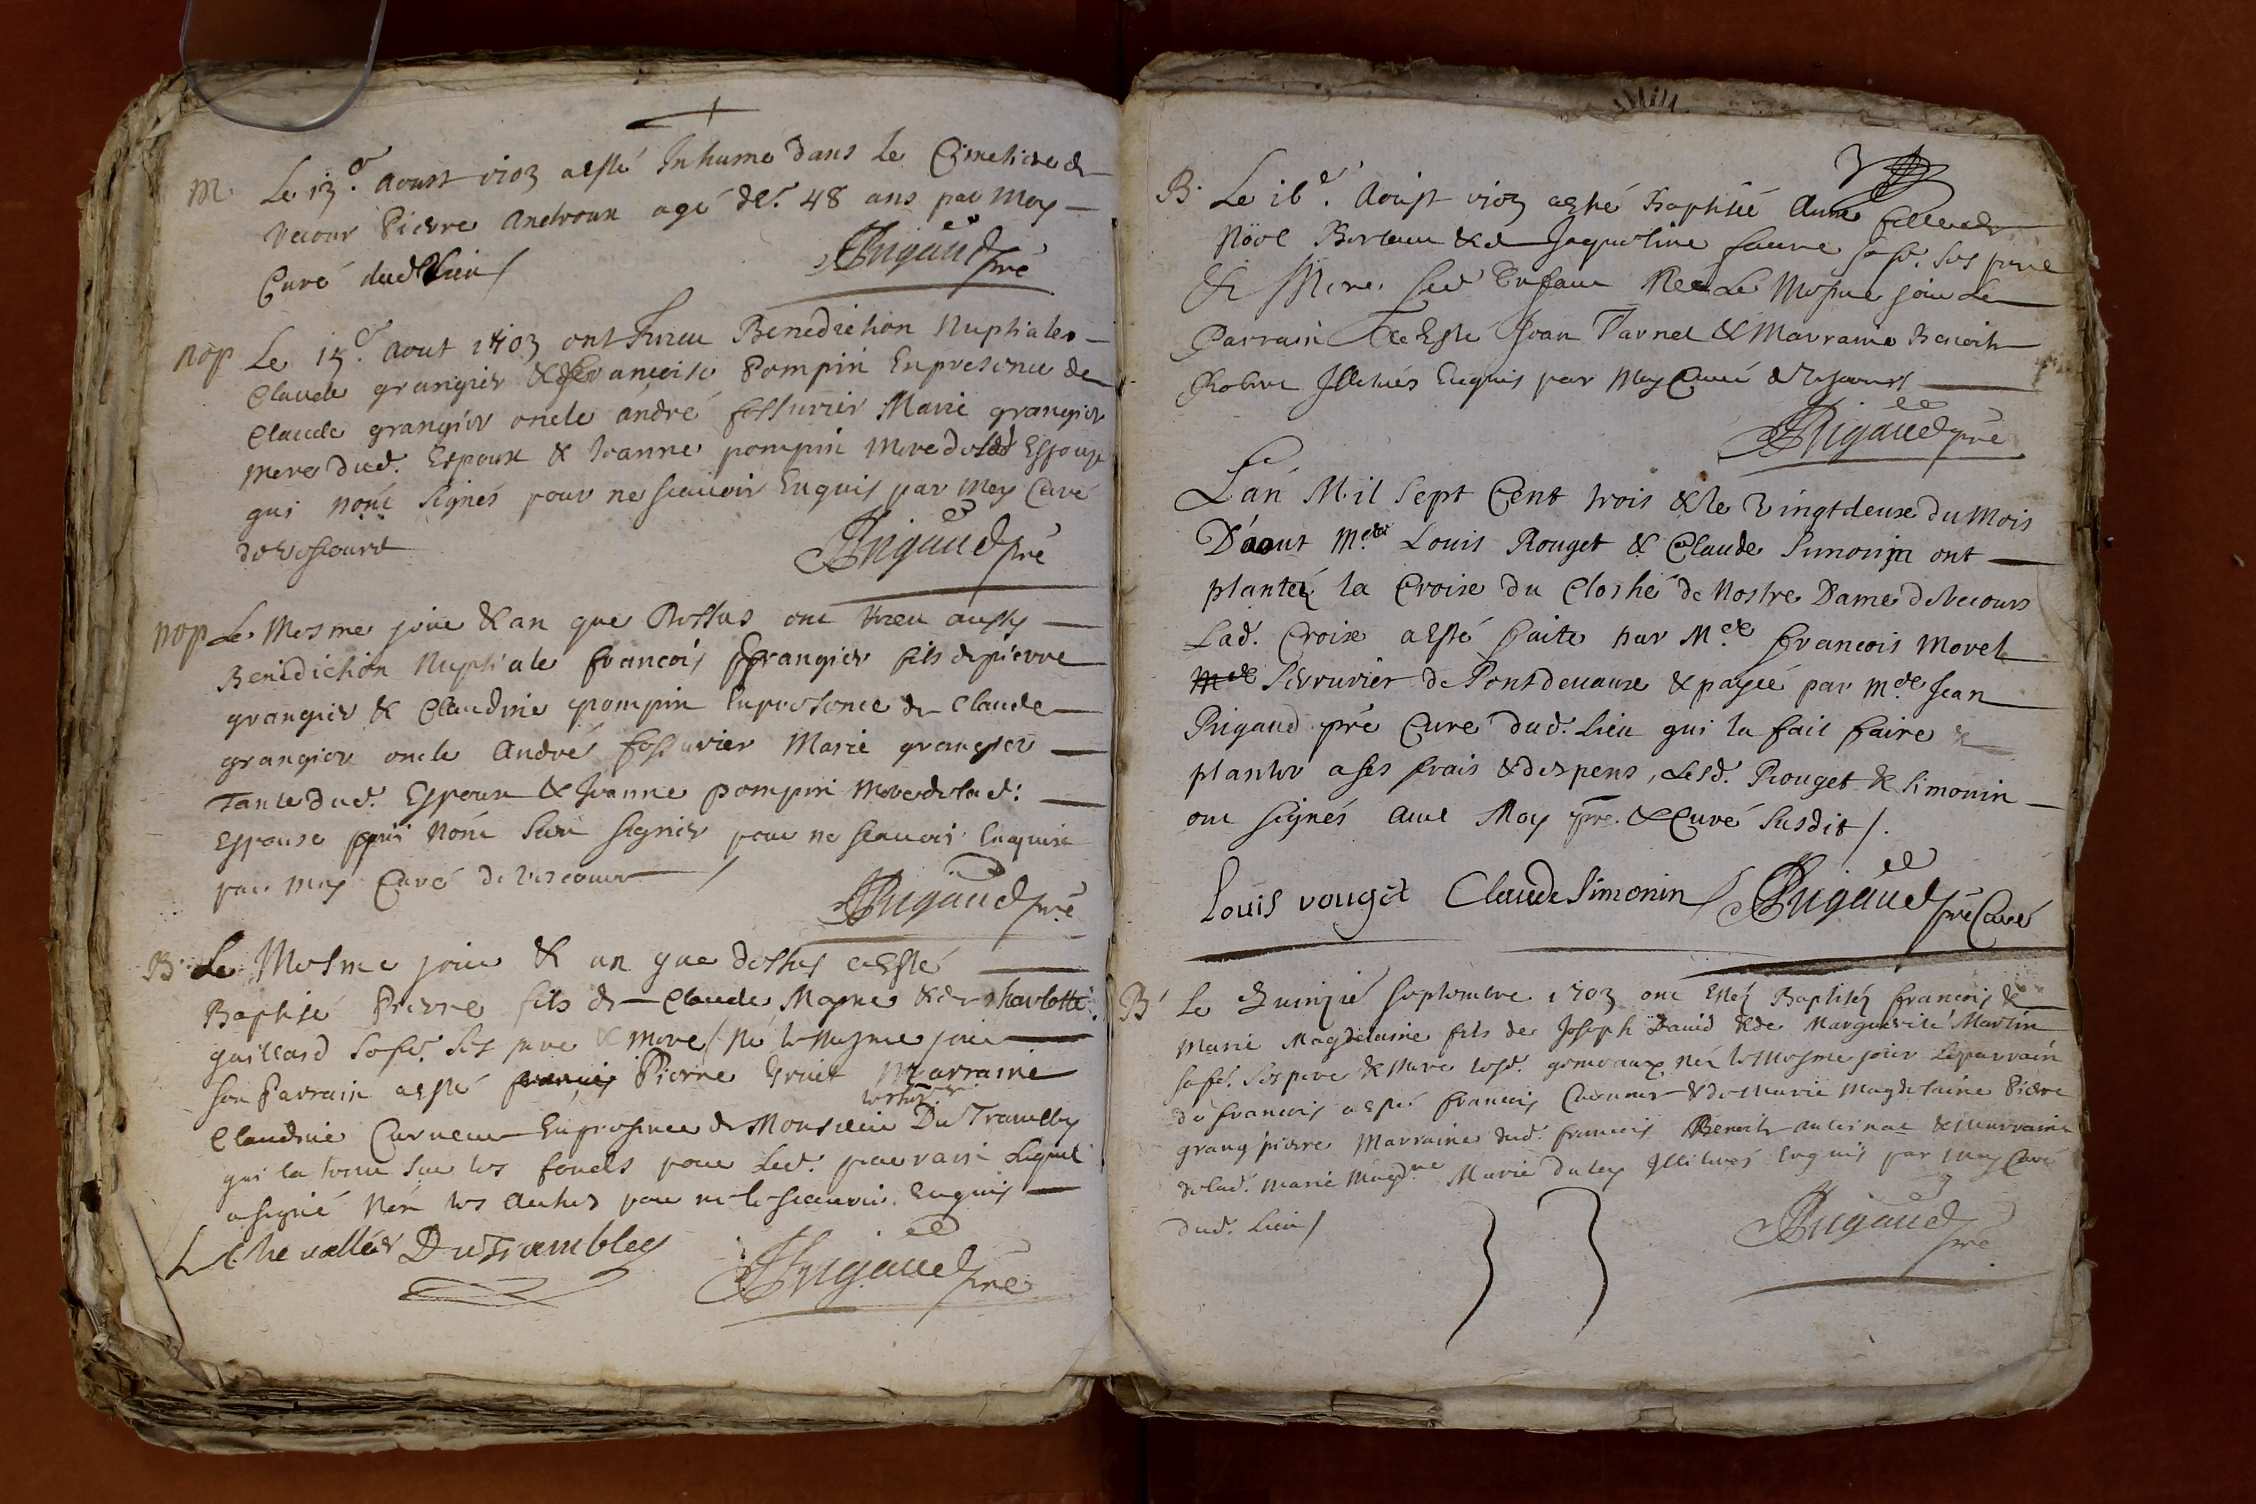 M. Le 13.e Aoust 1703 a esté Inhumé dans le Cimetiere de
Vecour Pierre Androux agé de 48 ans par Moy
Curé dud Lieu /
JRigaud pre
nop Le 15.e Aout 1703 ont Receu Benediction Nuptiales
Claude grangier & francoise Pompin En presence de
Claude grangier oncle andré fossurier Marie grangier
mere dud. Espoux & Jeanne pompin Mere de lad Espouse
qui nont signés pour ne scauoir Enquis par Moy Curé
de Vescours
JRigaud pre
nop Le Mesme jour & an que Dessus ont Receu aussy
Benediction Nuptiale francois grangier fils de pierre
grangier & Claudine pompin En presence de Claude
grangier oncle André fossurier Marie grangier
Tante dud. Espoux & Jeanne pompin Mere de lad.
Espouse qui nont sceu signer pour ne scauoir Enquis
par Moy Curé de Vescours /
JRigaud pre
B. Le Mesme jour & an que dessus a Esté
Baptisé Pierre fils de Claude Moyne & de charlotte
guillard sa fe. Ses pere & mere / Né le mesme jour
son Parrain a esté Pierre Marraine
Claudine En presence de Monsieur Du Trambley
qui la tenu sur les fonds pour led. parrain Lequel
a signé Non les Autres pour ne le scauoir Enquis
L Chevallier DuTrambley JRigaud pre
B. Le 16.e Aoust 1703 a esté Baptisée Anne fille de
Nöel Borteau & de Jaqueline faure sa fe. Ses pere
& Mere. Led Enfant Née Le Mesme jour Le
Parrain a Esté Jean Tarnel & Marraine Benoite
Robin Illiterés Enquis par Moy Curé de Vescours
JRigaud pre
L'án Mil Sept Cent trois & le Vingtdeuxe du Mois
D'aout M.re Louis Rouget & Claude Simonin ont
planteé la Croise du Closhé de Nostre Dame de Vecours
Lad. Croise a Esté faite par M.re francois Morel
Serrurier de Pontdevaux & payée par M.re Jean
Rigaud pré Curé dud. Lieu qui la fait faire &
planter a ses frais & despens, Lesd. Rouget & Simonin
ont signés avec Moy pre. & Curé Susdit /.
Louis rouget Claude Simonin JRigaud pre Curé
B. Le Quinzié septembre 1703 ont Estéz Baptiséz francois &
Marie Magdelaine fils de Joseph David & de Marguerite Martin
sa fe. Ses pere & mere lesd. gemeaux néz le mesme jour Le parrain
de francois a esté francois & de Marie Magdelaine Pierre
grang pierre Marraine dud. francois Benoite & Marraine
de lad. Marie Magd.ne Marie Illiterés Enquis par moy Curé
dud. Lieu /
JRigaud pre